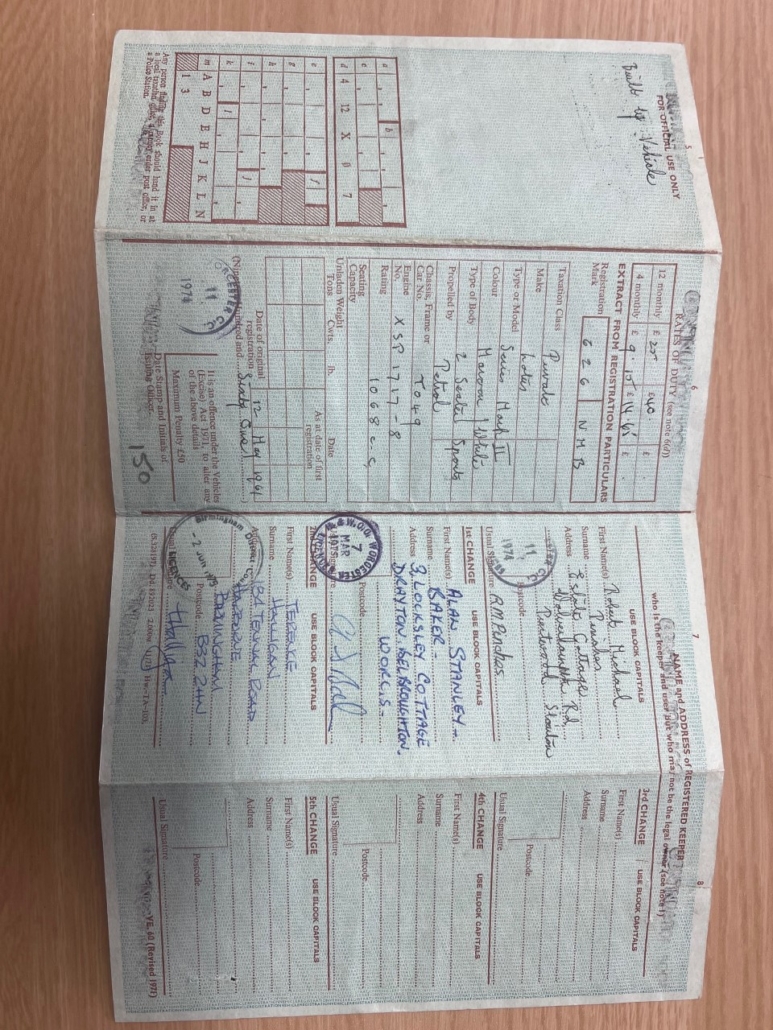 5
FOR OFFICIAL USE ONLY
Built by Vehicle
a b
c
d 4 12 X 0 7
e
f
g
h
j
k
m A B D E H J K L N
1 3
Any person finding this Book should hand it in at
a local taxation office, a money order post office, or
a Police Station.
6
RATES OF DUTY (see note 6(d))
12 monthly £ 25 40
4 monthly £ £ £
EXTRACT FROM REGISTRATION PARTICULARS
Registration Mark 626 NMB
Taxation Class Private
Make Lotus
Type or Model Series Mark II
Colour Maroon/White
Type of Body 2 Seater Sports
Propelled by Petrol
Chassis, Frame or Car No.
Engine No. XSP 1717-8
Rating 1068 c.c.
Seating Capacity
Unladen Weight
Tons Cwts. lb. Date
As at date of first registration
Date of original registration 12 May 1961
(Nineteen hundred and Sixty One)
11
1974
It is an offence under the Vehicles
(Excise) Act 1971, to alter any
of the above details
Maximum Penalty £50
Date Stamp and Initials of
Issuing Officer
150
7
NAME and ADDRESS of REGISTERED KEEPER
who is the keeper and user but who may not be the legal owner (see note 1)
USE BLOCK CAPITALS
First Name(s) Robert Michael
Surname
Address Estate Cottage
Wolverhampton Rd
Stourton
Postcode
11
1974
Usual Signature
1st CHANGE USE BLOCK CAPITALS
First Name(s) ALAN STANLEY
Surname BAKER
Address 3, LOCKSLEY COTTAGE
DRAYTON, BELBROUGHTON.
WORCS.
Postcode
WORCESTER
7
MAR
1975
Usual Signature
2nd CHANGE USE BLOCK CAPITALS
First Name(s) TERENCE
Surname HALLIGAN
Address 184 TENNAL ROAD
HARBORNE
BIRMINGHAM
Postcode B32 2HN
Birmingham
-2 JUN 1975
LICENCES
8
3rd CHANGE USE BLOCK CAPITALS
First Name(s)
Surname
Address
Postcode
Usual Signature
4th CHANGE USE BLOCK CAPITALS
First Name(s)
Surname
Address
Postcode
Usual Signature
5th CHANGE USE BLOCK CAPITALS
First Name(s)
Surname
Address
Postcode
Usual Signature
VE. 60 (Revised 1971)